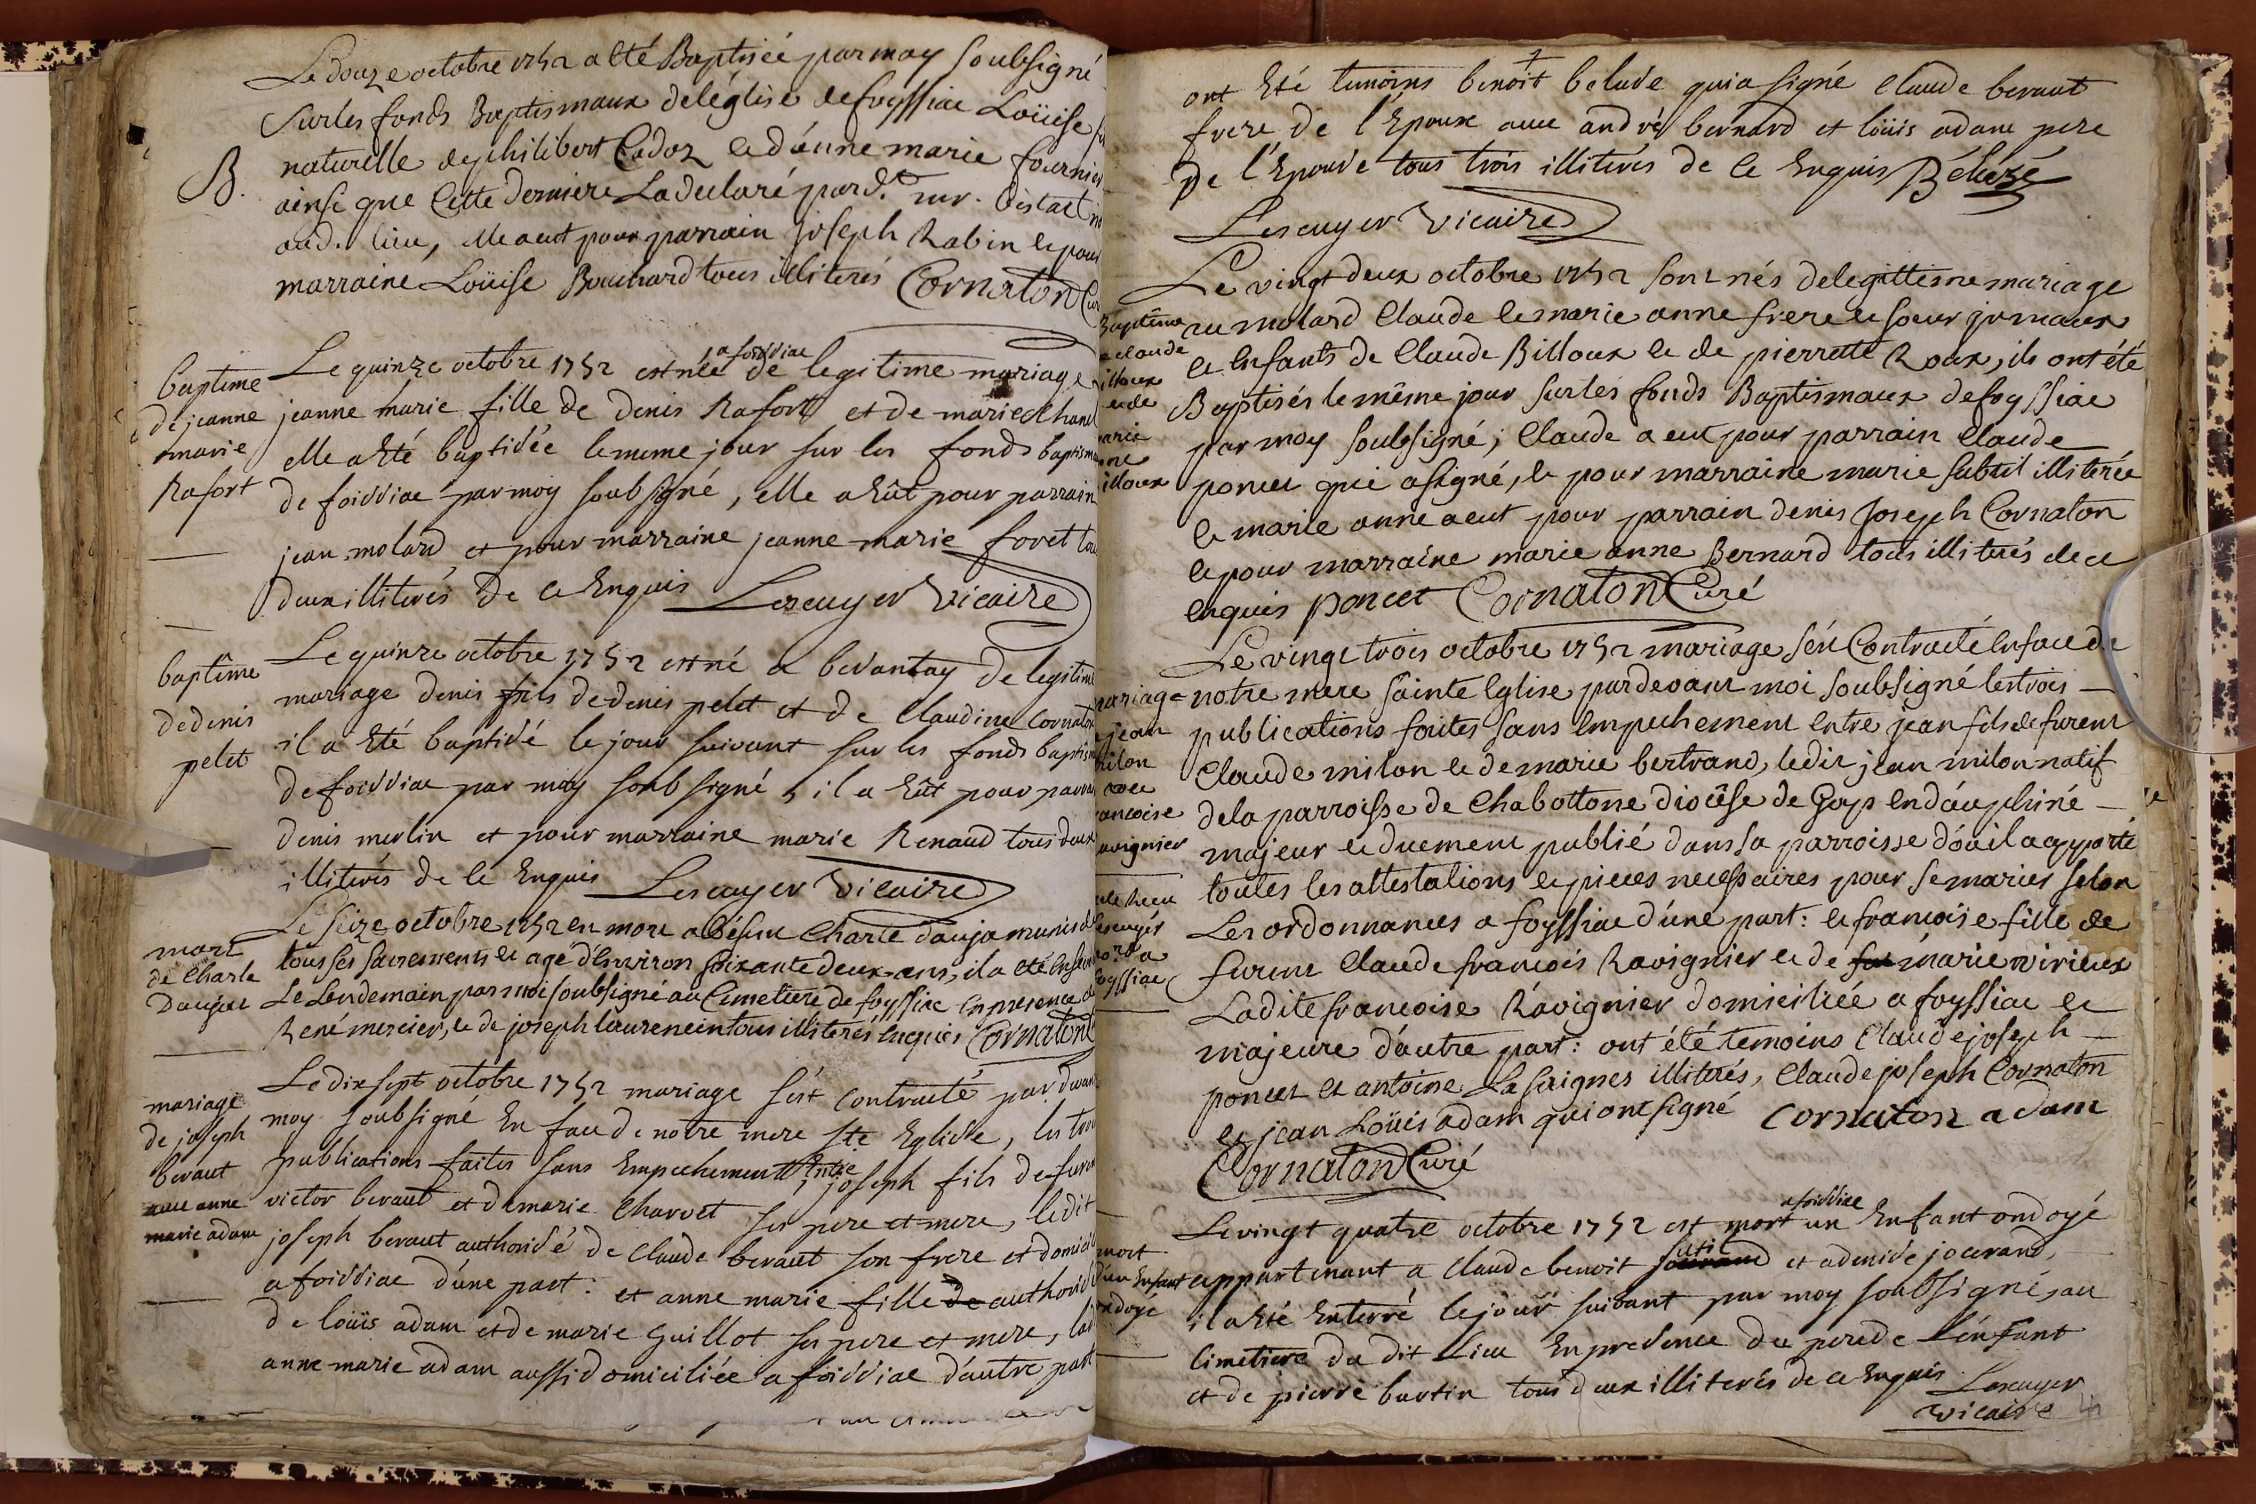 Le douze octobre 1752 a eté Baptisée par moy soubsigné
sur les fonds Baptismaux de léglise de foyssiac Loüise
B.
naturelle de philibert Cadoz et d'anne marie fournier
ainsi que Cette derniere La declaré
aud. lieu, elle a eut pour parrain joseph Rabin et pour
marraine Loüise Bouchard tous illiterés Cornaton Cur
baptime
de jeanne
marie
Rafort
a foissiac
Le quinze octobre 1752 est née de legitime mariage
jeanne marie fille de denis Rafort et de marie Chanel
elle a Eté baptisée le meme jour sur les fonds baptism
de foissiac par moy soubsigné, elle a Eût pour parrain
jean molard et pour marraine jeanne marie foret tou
deux illiterés de ce Enquis Lescuyer vicaire
baptîme
de denis
pelet
Le quinze octobre 1752 est né a bevantay de legitime
mariage denis fils de denis pelet et de Claudine Cornaton
il a Eté baptisé le jour suivant sur les fonds baptism
de foissiac par moy soubsigné, il a Eût pour parrain
denis merlin et pour marraine marie Renaud tous deux
illiterés de ce Enquis Lescuyer vicaire
mort
de Charle
Daujat
Le seize octobre 1752 en mort a Charle daujat munis de
tous ses sacrements et agé d'Environ soixante deux ans, il a eté
Le Lendemain par moi soubsigné au Cimetiere de foyssiac en presence de
René mercier, et de joseph laurencin tous illiterés Enquis Cornaton C
mariage
de joseph
beraut
avec anne
marie adam
Le dix sept octobre 1752 mariage s'est contracté par devant
moy soubsigné En face de notre mere ste Eglise, les troi
publications faites sans Empechement Entre joseph fils de furent
victor beraut et de marie Charvet ses pere et mere, ledit
joseph beraut authorisé de Claude beraut son frere et domicil
a foissiac d'une part : et anne marie fille de authorisé
de loüis adam et de marie Guillot ses pere et mere, lad
anne marie adam aussi domiciliée a foissiac d'autre part
ont Eté temoins benoit beluse qui a signé Claude beraut
frere de l'Epoux avec andré bernard et loüis adam pere
de l'Epouse tous trois illiterés de ce Enquis Béluze
Lescuyer vicaire
Baptême
de Claude
illoux
et de
marie
anne
illoux
Le vingt deux octobre 1752 sont nés de legittime mariage
au molard Claude et marie anne frere et soeur jumeaux
et Enfants de Claude Billoux et de pierrette Roux, ils ont été
Baptisés le même jour sur les fonds Baptismaux de foyssiac
par moy soubsigné ; Claude a eut pour parrain Claude
poncet qui a signé, et pour marraine marie subtil illiterée
et marie anne a eut pour parrain denis joseph Cornaton
et pour marraine marie anne Bernard tous illiterés de ce
enquis poncet Cornaton Curé
mariage
jean
milon
avec
ancoise
avignier
Le vingt trois octobre 1752 mariage s'est Contracté En face de
notre mere sainte Eglise pardevant moi soubsigné les trois
publications faites sans empechement entre jean fils de furent
Claude milon et de marie bertrand, ledit jean milon natif
de la parroisse de Chabottone diocêse de Gap en dauphiné
majeur et duement publié dans sa parroisse d'ou il a apporté
toutes les attestations et pieces necessaires pour se marier selon
Les ordonnances a foyssiac d'une part : et francoise fille de
furent Claude francois Ravignier et de marie virieux
Ladite francoise Ravignier domiciliée a foyssiac et
majeure d'autre part : ont été temoins Claude joseph
poncet et antoine Lasaignes illiterés, Claude joseph Cornaton
et jean Loüis adam qui ont signé Cornaton adam
Cornaton Curé
mort
d'un Enfant
ondoyé
a foissiac
Le vingt quatre octobre 1752 est mort un Enfant ondoyé
appartenant a Claude benoit sutil et a denise jocerand,
il a Eté Enterré le jour suivant par moy soubsigné, au
cimetiere du dit Lieu En presence du pere de L'enfant
et de pierre burtin tous deux illiterés de ce Enquis Lescuyer
vicaire